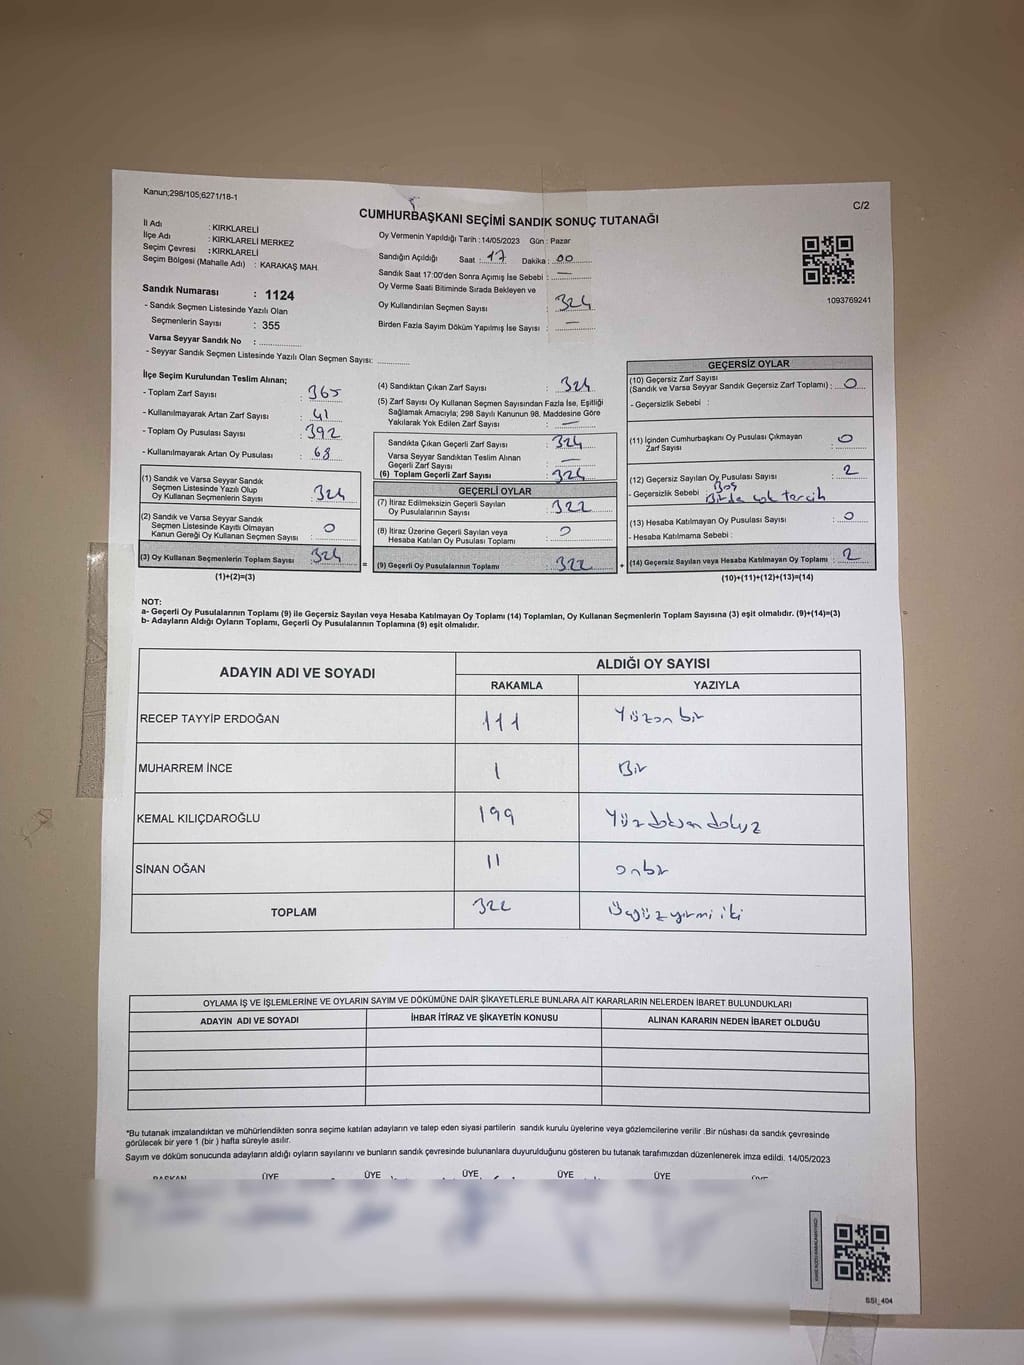 Kanun;298/105;6271/18-1
C/2
CUMHURBAŞKANI SEÇİMİ SANDIK SONUÇ TUTANAĞI
İl Adı : KIRKLARELİ
İlçe Adı : KIRKLARELİ MERKEZ
Seçim Çevresi : KIRKLARELİ
Seçim Bölgesi (Mahalle Adı) : KARAKAŞ MAH.
Sandık Numarası : 1124
- Sandık Seçmen Listesinde Yazılı Olan
Seçmenlerin Sayısı : 355
Varsa Seyyar Sandık No :
- Seyyar Sandık Seçmen Listesinde Yazılı Olan Seçmen Sayısı:
Oy Vermenin Yapıldığı Tarih : 14/05/2023 Gün : Pazar
Sandığın Açıldığı Saat : 17 Dakika : 00
Sandık Saat 17:00'den Sonra Açımış İse Sebebi : —
Oy Verme Saati Bitiminde Sırada Bekleyen ve
Oy Kullandırılan Seçmen Sayısı : 324
Birden Fazla Sayım Döküm Yapılmış İse Sayısı : —
1093769241
İlçe Seçim Kurulundan Teslim Alınan;
- Toplam Zarf Sayısı : 365
- Kullanılmayarak Artan Zarf Sayısı : 41
- Toplam Oy Pusulası Sayısı : 392
- Kullanılmayarak Artan Oy Pusulası : 68
(1) Sandık ve Varsa Seyyar Sandık
Seçmen Listesinde Yazılı Olup
Oy Kullanan Seçmenlerin Sayısı : 324
(2) Sandık ve Varsa Seyyar Sandık
Seçmen Listesinde Kayıtlı Olmayan
Kanun Gereği Oy Kullanan Seçmen Sayısı : 0
(3) Oy Kullanan Seçmenlerin Toplam Sayısı : 324
(1)+(2)=(3)
(4) Sandıktan Çıkan Zarf Sayısı : 324
(5) Zarf Sayısı Oy Kullanan Seçmen Sayısından Fazla İse, Eşitliği
Sağlamak Amacıyla; 298 Sayılı Kanunun 98. Maddesine Göre
Yakılarak Yok Edilen Zarf Sayısı : —
Sandıkta Çıkan Geçerli Zarf Sayısı : 324
Varsa Seyyar Sandıktan Teslim Alınan
Geçerli Zarf Sayısı : —
(6) Toplam Geçerli Zarf Sayısı : 324
GEÇERLİ OYLAR
(7) İtiraz Edilmeksizin Geçerli Sayılan
Oy Pusulalarının Sayısı : 322
(8) İtiraz Üzerine Geçerli Sayılan veya
Hesaba Katılan Oy Pusulası Toplamı : 0
=
(9) Geçerli Oy Pusulalarının Toplamı : 322
+
GEÇERSİZ OYLAR
(10) Geçersiz Zarf Sayısı
(Sandık ve Varsa Seyyar Sandık Geçersiz Zarf Toplamı) : 0
- Geçersizlik Sebebi :
(11) İçinden Cumhurbaşkanı Oy Pusulası Çıkmayan
Zarf Sayısı : 0
(12) Geçersiz Sayılan Oy Pusulası Sayısı : 2
Boş
- Geçersizlik Sebebi : Birden çok tercih
(13) Hesaba Katılmayan Oy Pusulası Sayısı : 0
- Hesaba Katılmama Sebebi :
(14) Geçersiz Sayılan veya Hesaba Katılmayan Oy Toplamı : 2
(10)+(11)+(12)+(13)=(14)
NOT:
a- Geçerli Oy Pusulalarının Toplamı (9) ile Geçersiz Sayılan veya Hesaba Katılmayan Oy Toplamı (14) Toplamları, Oy Kullanan Seçmenlerin Toplam Sayısına (3) eşit olmalıdır. (9)+(14)=(3)
b- Adayların Aldığı Oyların Toplamı, Geçerli Oy Pusulalarının Toplamına (9) eşit olmalıdır.
ADAYIN ADI VE SOYADI
ALDIĞI OY SAYISI
RAKAMLA YAZIYLA
RECEP TAYYİP ERDOĞAN 111 Yüzon bir
MUHARREM İNCE 1 Bir
KEMAL KILIÇDAROĞLU 199 Yüzdoksan dokuz
SİNAN OĞAN 11 onbir
TOPLAM 322 Üçyüz yirmi iki
OYLAMA İŞ VE İŞLEMLERİNE VE OYLARIN SAYIM VE DÖKÜMÜNE DAİR ŞİKAYETLERLE BUNLARA AİT KARARLARIN NELERDEN İBARET BULUNDUKLARI
ADAYIN ADI VE SOYADI İHBAR İTİRAZ VE ŞİKAYETİN KONUSU ALINAN KARARIN NEDEN İBARET OLDUĞU
*Bu tutanak imzalandıktan ve mühürlendikten sonra seçime katılan adayların ve talep eden siyasi partilerin sandık kurulu üyelerine veya gözlemcilerine verilir .Bir nüshası da sandık çevresinde
görülecek bir yere 1 (bir ) hafta süreyle asılır.
Sayım ve döküm sonucunda adayların aldığı oyların sayılarını ve bunların sandık çevresinde bulunanlara duyurulduğunu gösteren bu tutanak tarafımızdan düzenlenerek imza edildi. 14/05/2023
BAŞKAN ÜYE ÜYE ÜYE ÜYE ÜYE ÜYE
SSI_404